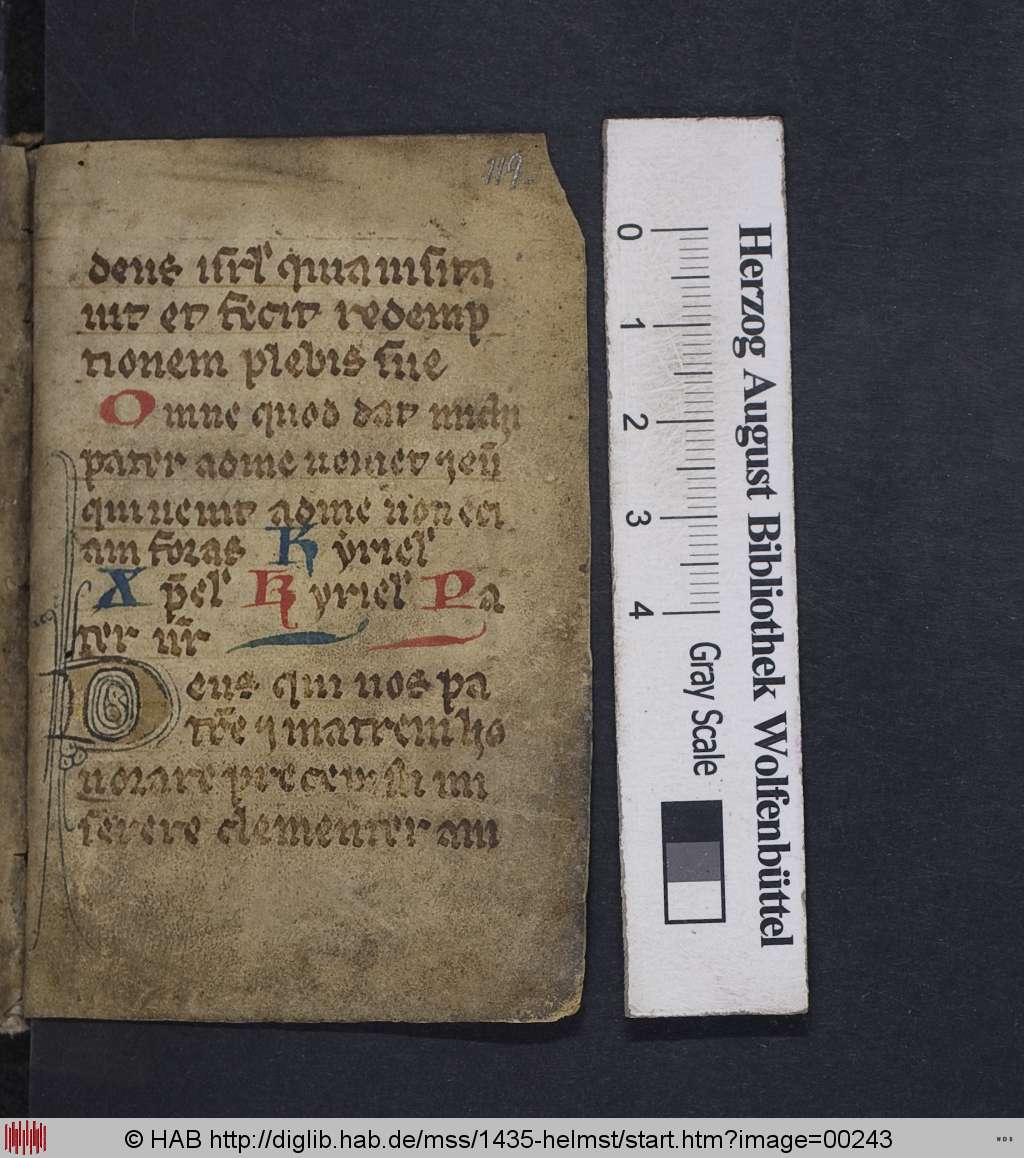 119
deus isrl̄ quia uisita
uit et fecit redemp
tionem plebis sue
Omne quod dat michi
pater adme ueniet ⁊ eū
qui uenit adme non eici
am foras Kyriel̄
Xp̄el̄ Kyriel̄ Pa
ter nr̄
Deus qui nos pa
trē ⁊ matrem ho
norare precepisti mi
serere clementer ani
Herzog August Bibliothek Wolfenbüttel
0 1 2 3 4
Gray Scale
© HAB http://diglib.hab.de/mss/1435-helmst/start.htm?image=00243